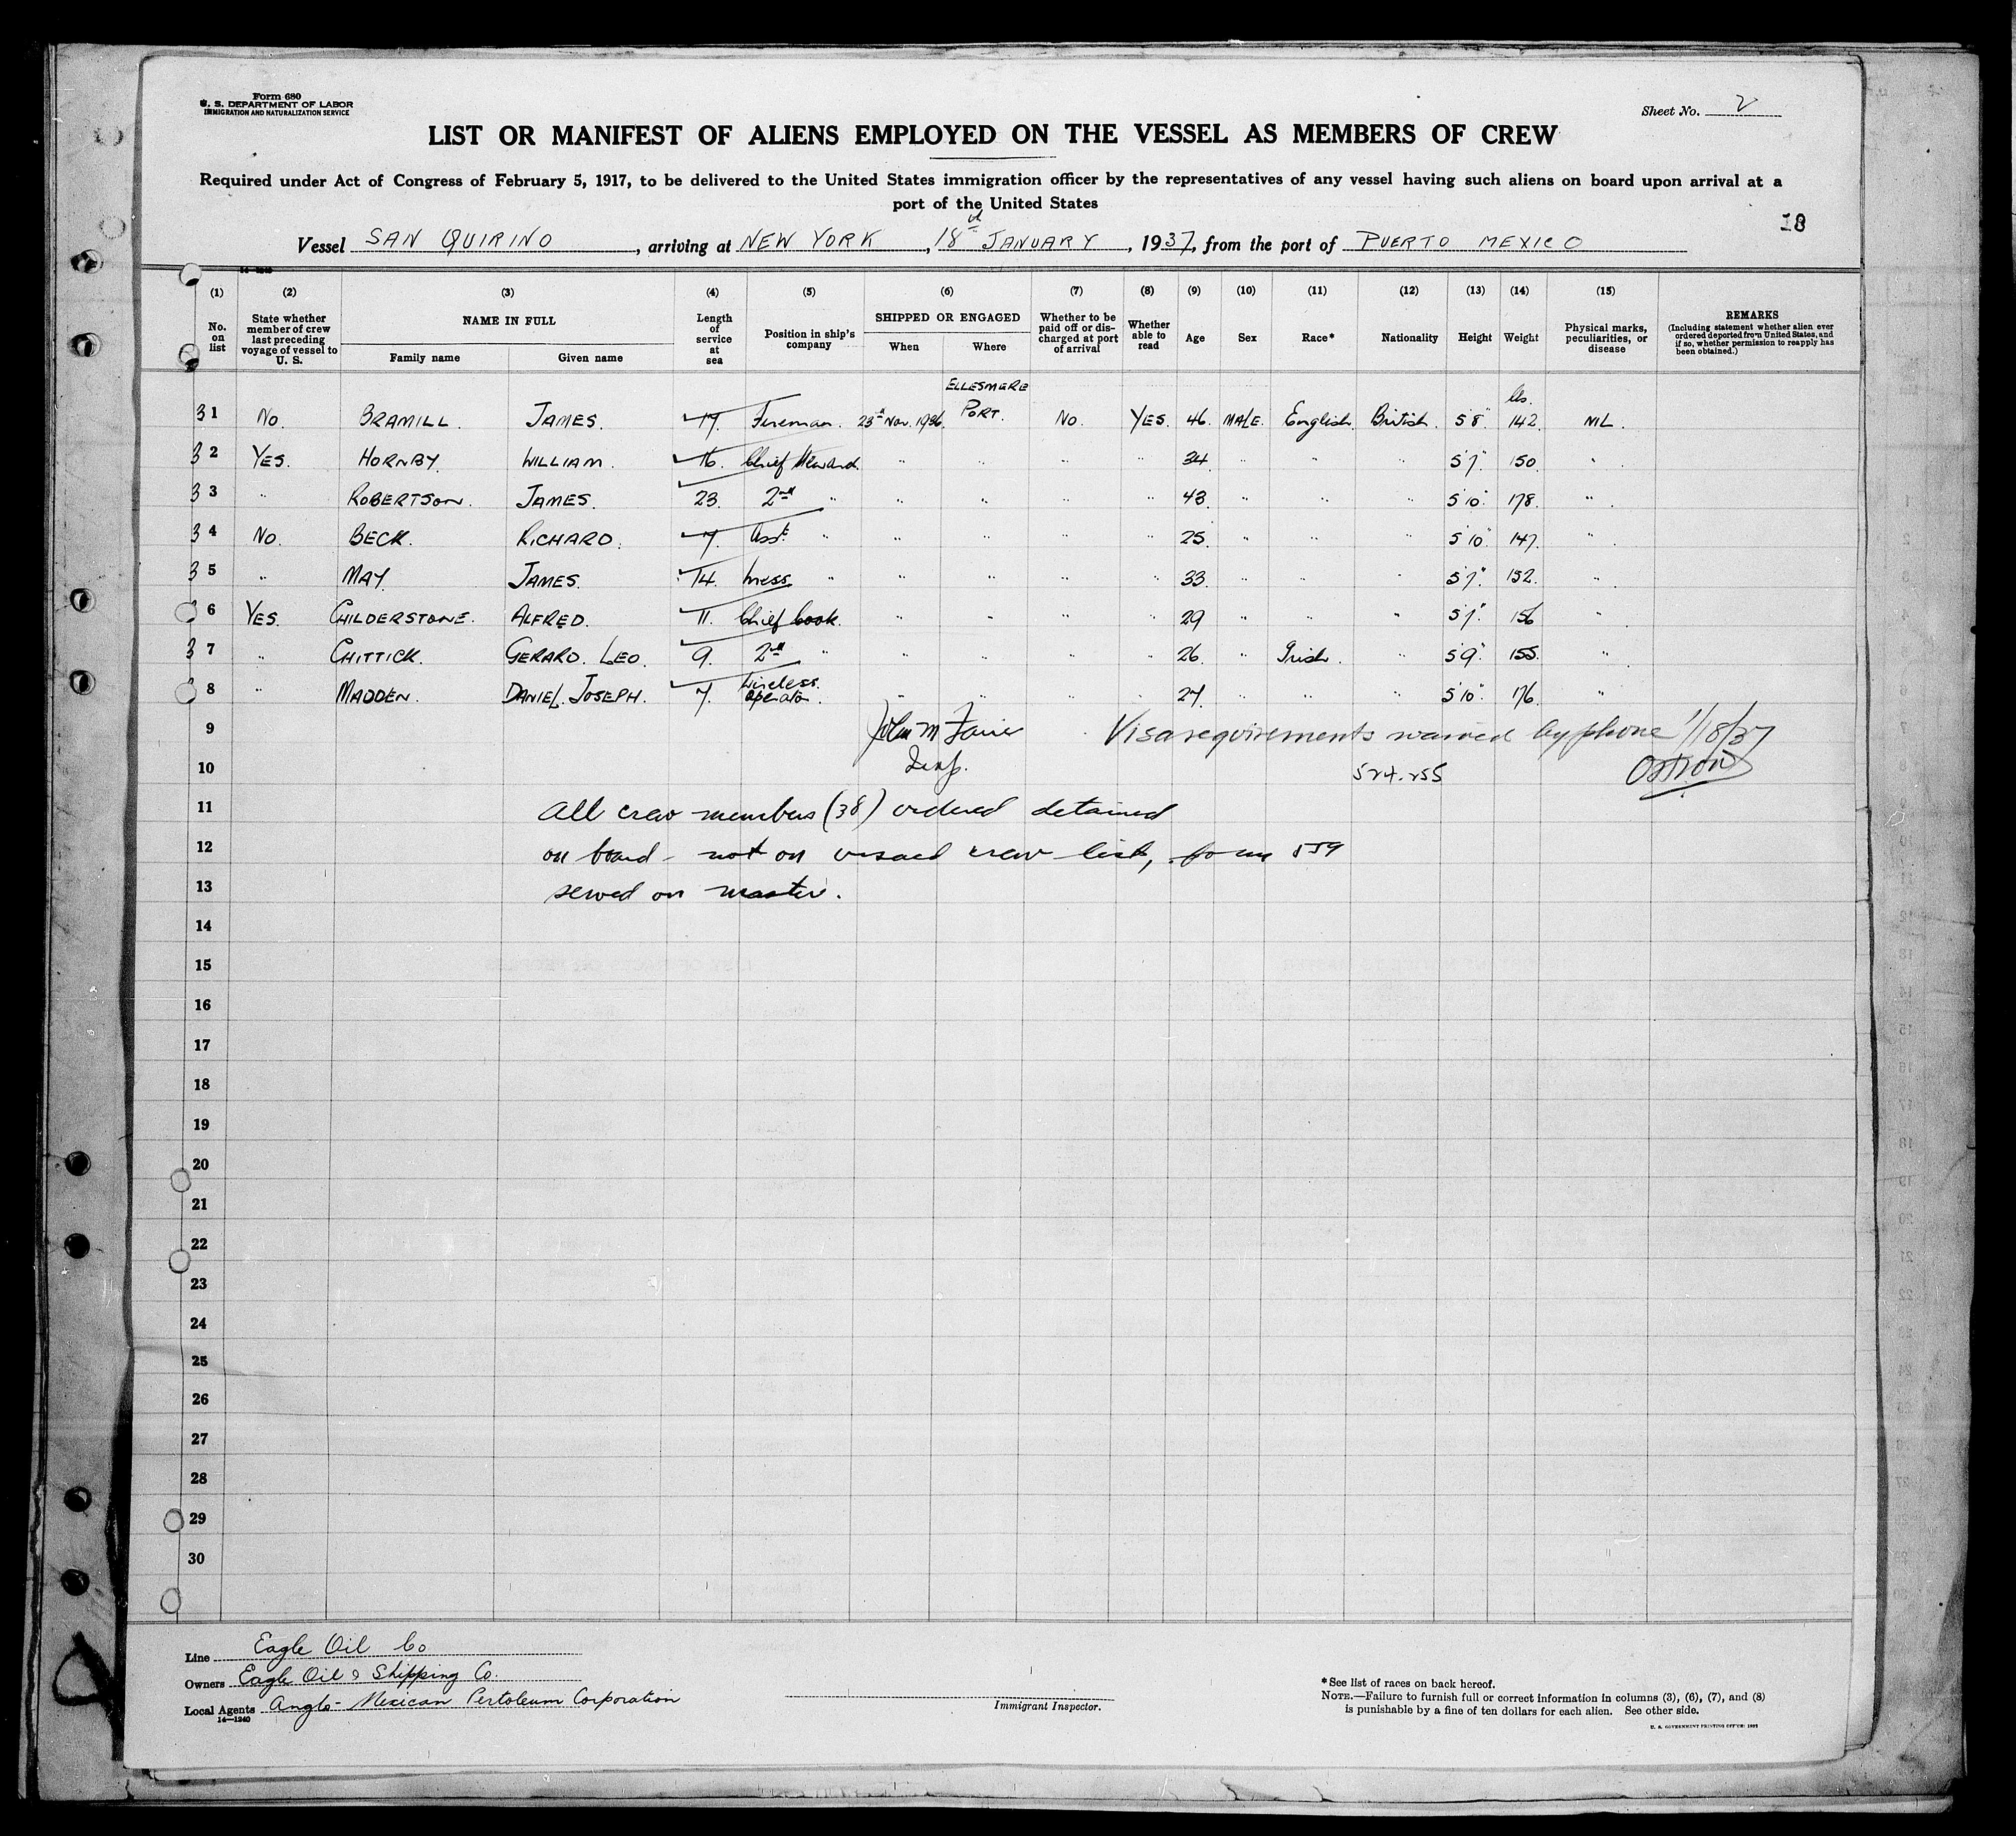 Form 680
U. S. DEPARTMENT OF LABOR
IMMIGRATION AND NATURALIZATION SERVICE
Sheet No. 2
LIST OR MANIFEST OF ALIENS EMPLOYED ON THE VESSEL AS MEMBERS OF CREW
Required under Act of Congress of February 5, 1917, to be delivered to the United States immigration officer by the representatives of any vessel having such aliens on board upon arrival at a
port of the United States
18
Vessel SAN QUIRINO, arriving at NEW YORK, 18th JANUARY, 1937, from the port of PUERTO MEXICO
14—1240
(1) (2) (3) (4) (5) (6) (7) (8) (9) (10) (11) (12) (13) (14) (15)
No. on list
State whether member of crew last preceding voyage of vessel to U. S.
NAME IN FULL
Family name Given name
Length of service at sea
Position in ship's company
SHIPPED OR ENGAGED
When Where
Whether to be paid off or discharged at port of arrival
Whether able to read
Age Sex Race* Nationality Height Weight
Physical marks, peculiarities, or disease
REMARKS
(Including statement whether alien ever ordered deported from United States, and if so, whether permission to reapply has been obtained.)
ELLESMERE
lbs.
31 No. BRAMILL. JAMES. 17. Fireman. 23rd Nov. 1936. PORT. No. YES. 46. MALE. English. British. 5'8". 142. NIL.
32 YES. HORNBY. WILLIAM. 16. Chief Steward. " " " " 34. " " " 5'7" 150. "
33 " ROBERTSON. JAMES. 23. 2nd " " " " " 43. " " " 5'10". 178. "
34 No. BECK. RICHARD. 7. Asst. " " " " " 25. " " " 5'10". 147. "
35 " MAY. JAMES. 14. Mess " " " " " 33. " " " 5'7". 152. "
36 YES. CHILDERSTONE. ALFRED. 11. Chief Cook. " " " " 29 " " " 5'7". 156 "
37 " CHITTICK. GERARD. LEO. 9. 2nd " " " " " 26. " Irish. " 5'9". 155. "
38 " MADDEN. DANIEL. JOSEPH. 7. Wireless Operator. " " " " 27. " " " 5'10". 176. "
9 John M
Visa requirements waived by phone 1/18/37
10 Insp.
524.255
11 All crew members (38) ordered detained
12 on board - not on visaed crew list, form 559
13 served on master.
14
15
16
17
18
19
20
21
22
23
24
25
26
27
28
29
30
Line Eagle Oil Co
Owners Eagle Oil & Shipping Co.
Local Agents Anglo-Mexican Pertoleum Corporation
14—1240
Immigrant Inspector.
*See list of races on back hereof.
NOTE.—Failure to furnish full or correct information in columns (3), (6), (7), and (8)
is punishable by a fine of ten dollars for each alien. See other side.